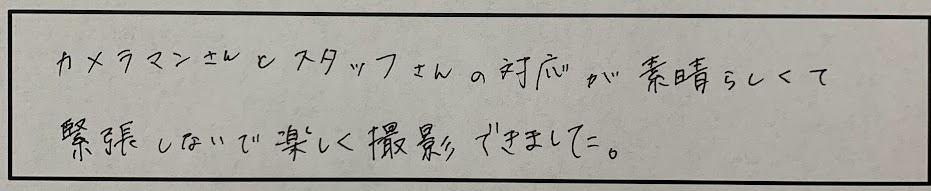 カメラマンさんとスタッフさんの対応が素晴らしくて
緊張しないで楽しく撮影できました。